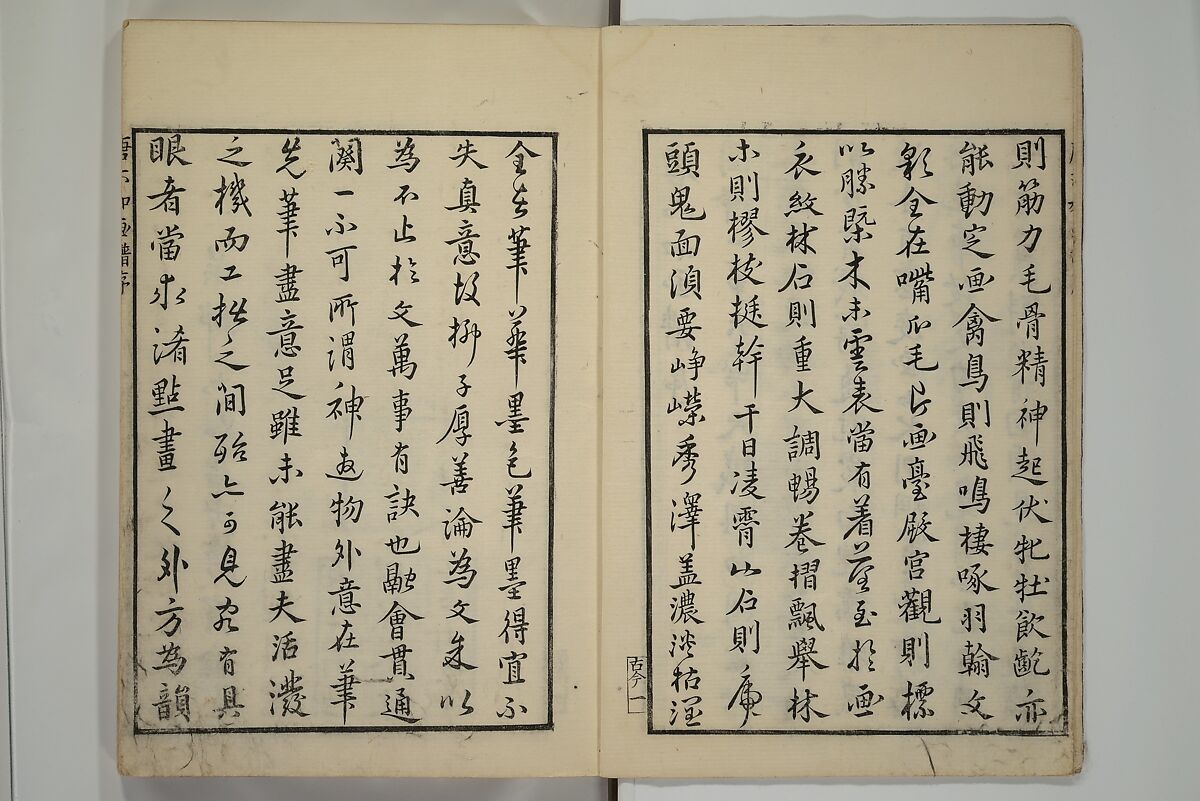 則筋力毛骨精神起伏牝牡飲齕亦
能動定画禽鳥則飛鳴棲啄羽翰文
彩全在嘴爪毛片画臺殿宮觀則標
以勝槩木末雲表當有着落至於画
衣紋林石則重大調暢卷摺飄舉林
木則樛枝挺幹干日凌霄山石則鹿
頭鬼面須要崢嶸秀澤蓋濃淡枯溼
全在筆筆墨色筆墨得宜不
失真意故柳子厚善論為文朱以
為不止於文萬事有訣也融會貫通
闕一不可所謂神遊物外意在筆
先筆盡意足雖未能盡夫活潑
之機而工拙之間殆亦可見宛有具
眼者當求諸點畫之外方為韻
唐六如画譜序
古今 一